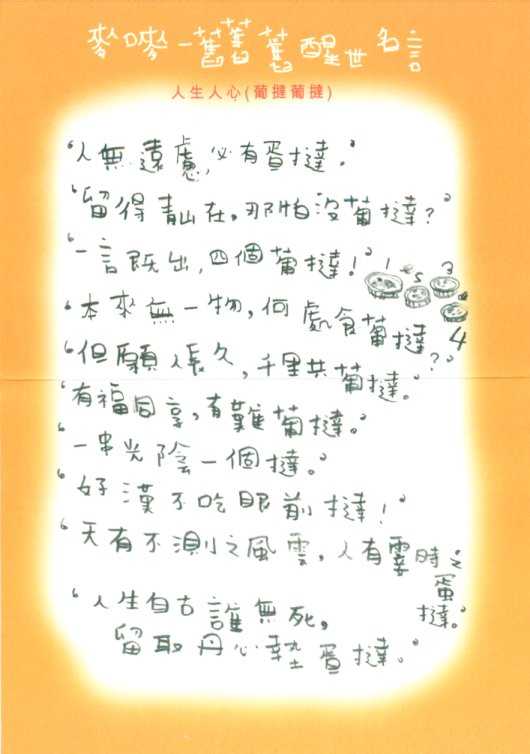 麥嘜一舊舊舊醒世名言
人生人心(葡撻葡撻)
‘人無遠慮,必有蛋撻。’
‘留得青山在,那怕沒葡撻?’
‘一言既出,四個葡撻!’
1 2 3
‘本來無一物,何處食葡撻?’
4
‘但願人長久,千里共葡撻。’
‘有福同享,有難葡撻。’
‘一串光陰一個撻。’
‘好漢不吃眼前撻!’
‘天有不測之風雲,人有霎時之蛋撻。’
‘人生自古誰無死,
留取丹心執蛋撻。’